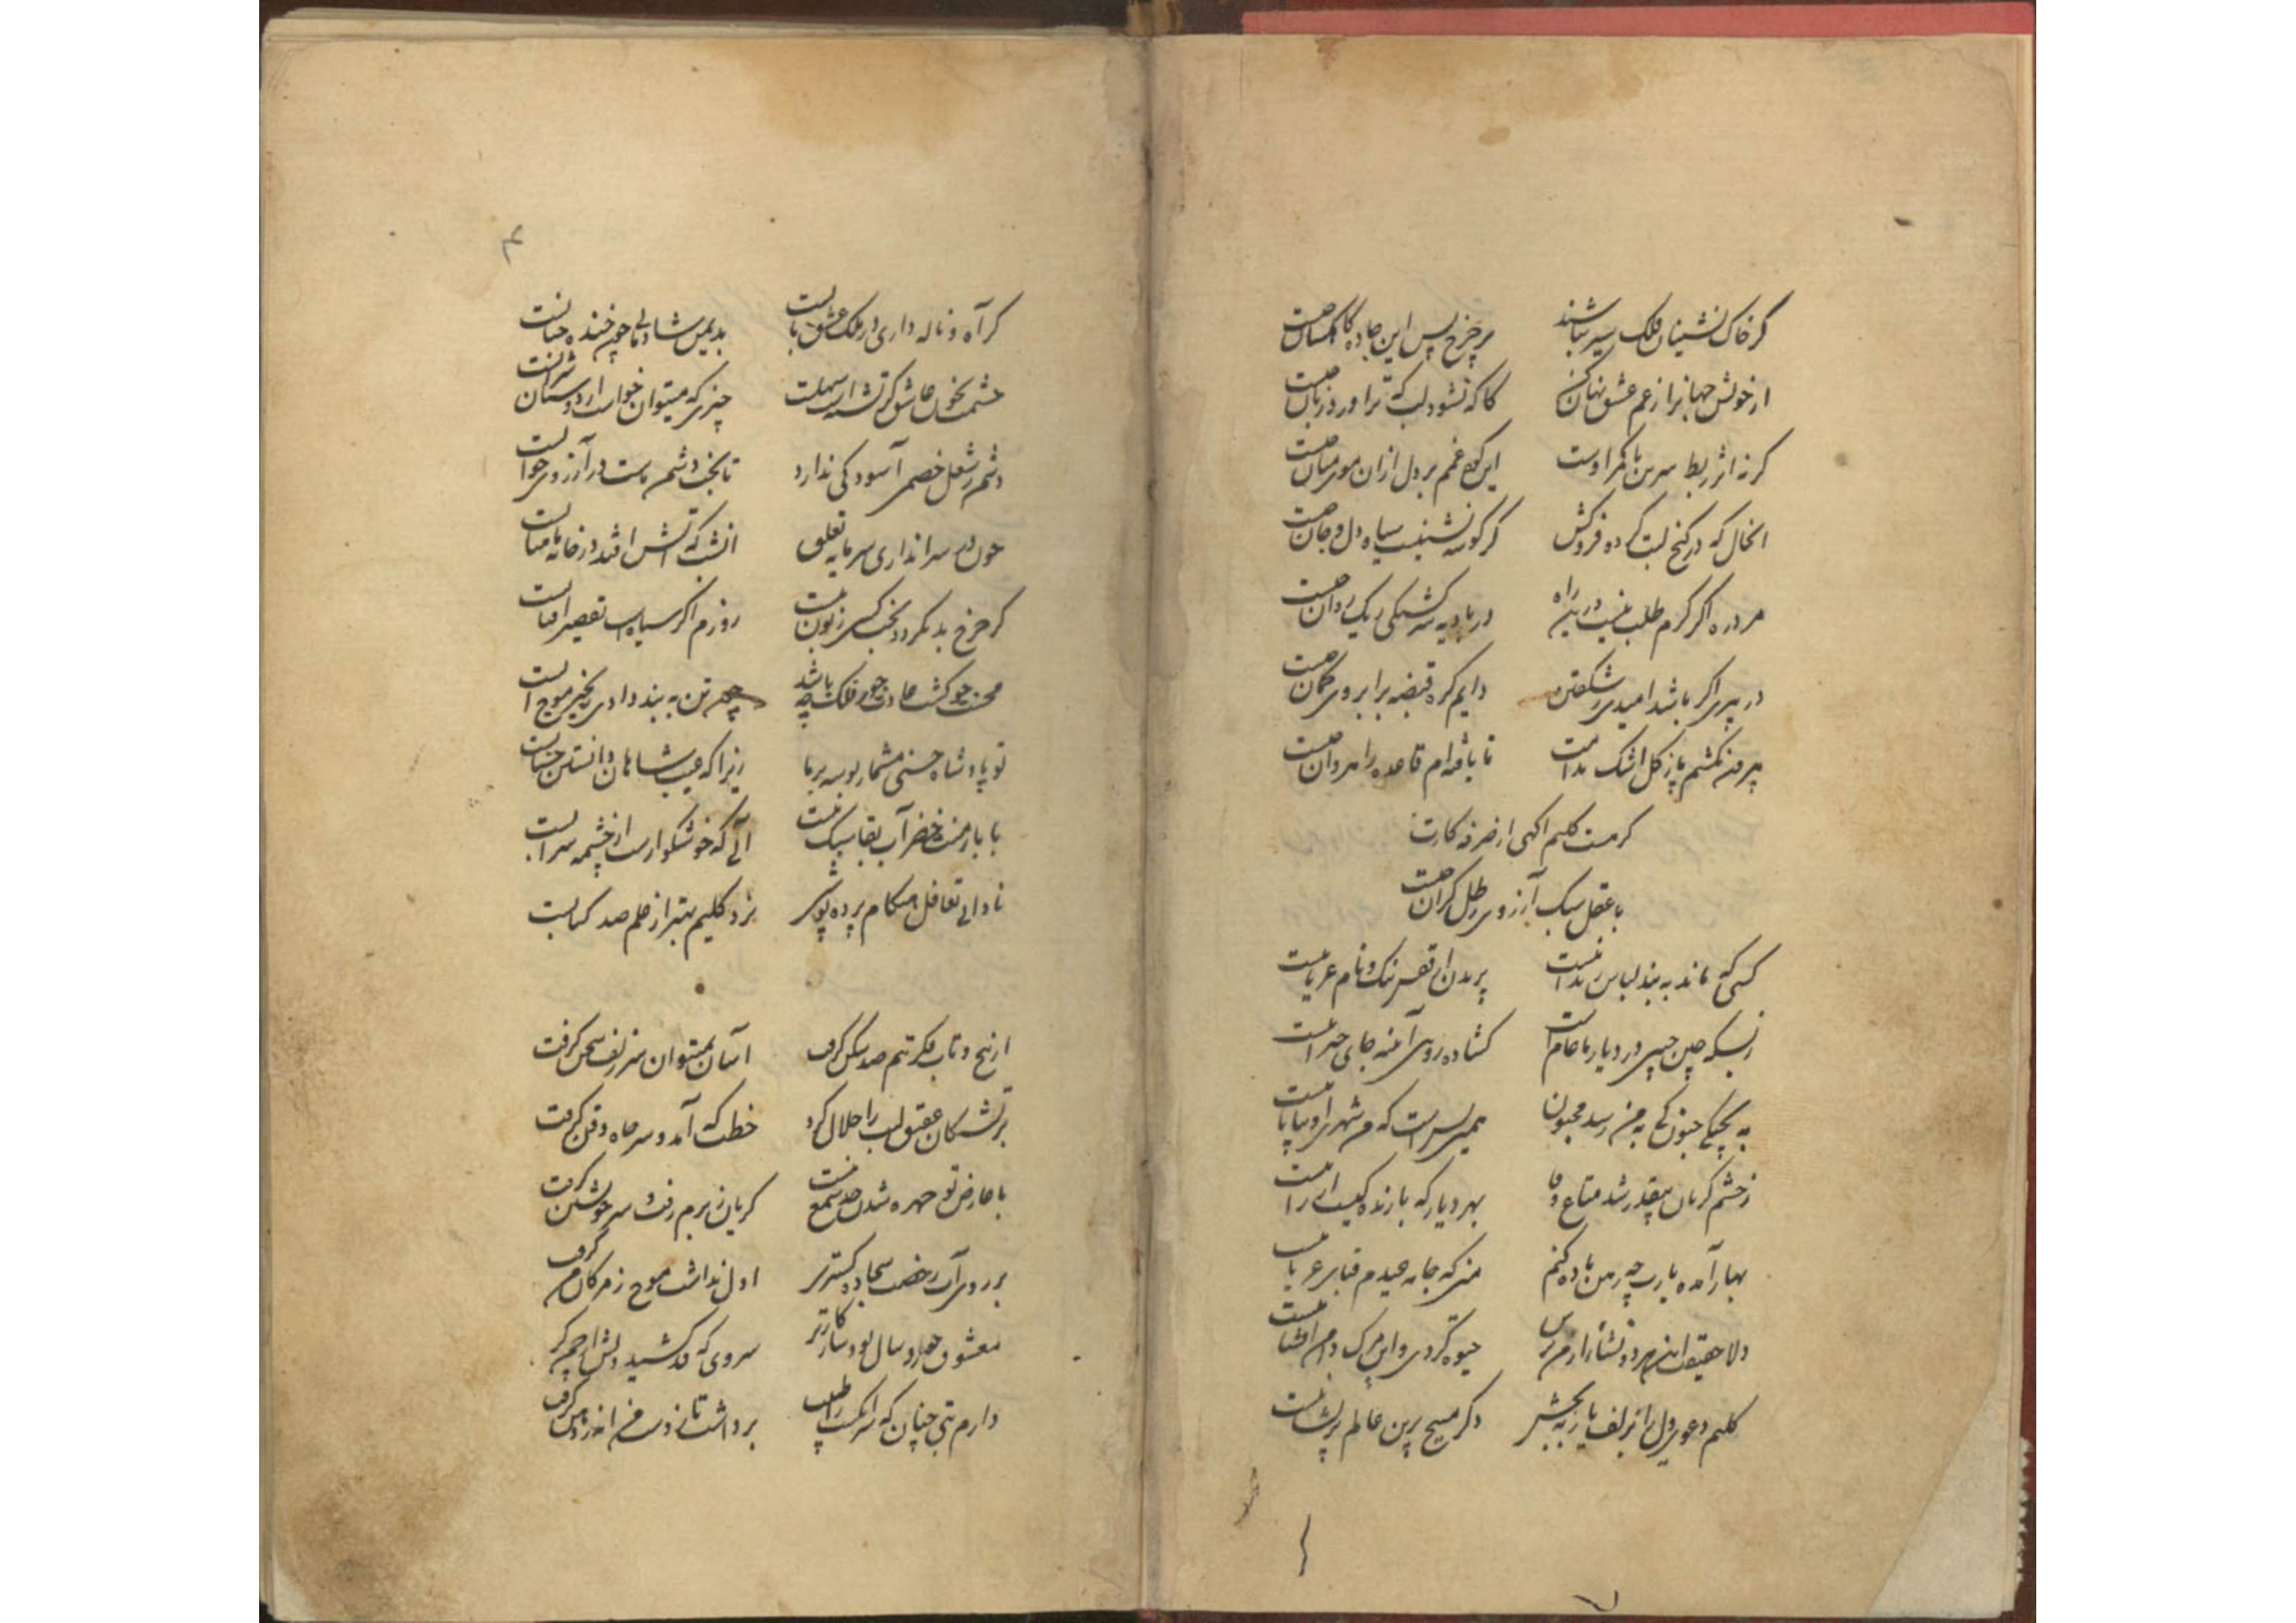 گر خاک نشینان فلک سیر نباشند
بر چرخ پس این جاده کاهکشان چیست
از خویش جهانرا ز غم عشق نهان کن
کاکه نشود لب که ترا ورد زبان چیست
گر نه اثر ربط سرین با کمر اوست
این کوه غمم بر دل ازان موی میان چیست
آنخال که در کنج لبت کرده فروکش
گر گوشه نشینست سیاه دل و جان چیست
هر ذره اگر گرم طلب نیست درین راه
در بادیه سرگشتگی ریک روان چیست
در پیری اگر باشد امیدی ز شکفتن
دایم گره قبضه بر ابروی کمان چیست
بیرون نکشم پا ز گل اشک ندامت
تا یافته‌ام قاعده راهروان چیست
گر هست کلیم آگهی از صرفه کارت
با عقل سبک آرزوی رطل گران چیست
کسی که ماند به بند لباس زندانیست
پریدن از قفس ننگ و نام عریانیست
ز بسکه چین جبین در دیار ما عامست
گشاده رویی آئینه جای حیرانیست
به پختگی جنون کی به من رسد مجنون
همین بس است که من شهری او بیابانیست
ز چشم گریان بیقدر شد متاع وفا
بهر دیار که بارندگیست ارزانیست
بهار آمده یارب چه رهن باده کنم
من که جامه عیدم قبای عریانیست
دلا حقیقت این هر دو نشأ از من پرس
حیوة گردی و این مرک دامن افشانیست
کلیم دعوی دل را بزلف یار ببخش
دگر مپیچ برین عالم پریشانیست
۴
گر آه و ناله داری در ملک عشق بابست
بدیمن شادمانی چون خنده حبابست
چشمت بخون عاشق گر تشنه است سهلست
چیزی که میتوان خواست از دوستان شرابست
دشمن ز شغل خصمی آسودگی ندارد
تا بخت دشمن ماست در آرزوی خوابست
چون در سر انداری سرمایه تعلق
آتش که آتش افتد در خانه ماهتابست
گر چرخ بد نگردد بخت کسی زبون نیست
روزم اگر سیاهست تقصیر آفتابست
محنت چو گشت عادت جور فلک چه باشد
چون تن به بند دادی زنجیر موج آبست
تو پادشاه حسنی مشمار بوسه بر ما
زیرا که عیب شاهان دانستن حسابست
با بار منت خضر آب بقا سبک نیست
آبی که خوشگوار است از چشمه سرابست
نادانی تغافل هنگام پرده پوشی
نزد کلیم بهتر از علم صد کتابست
از پیچ و تاب فکر تنم صد شکن گرفت
آسان نمیتوان سر زلف سخن گرفت
بر تشنگان عقیق لبت را حلال کرد
خطت که آمد و سر چاه ذقن گرفت
با عارض تو چهره شدن حد شمع نیست
گریان ز بزم رفت و سر خویشتن گرفت
بر روی آب رخصت سجاده گستری
اول نداشت موج ز مژگان من گرفت
معشوق خوردسال بود سازگارتر
سروی که قد کشید دلش از چمن گرفت
دارم تبی چنان که سرانگشت را طبیب
برداشت تا ز دست من اندر دهن گرفت